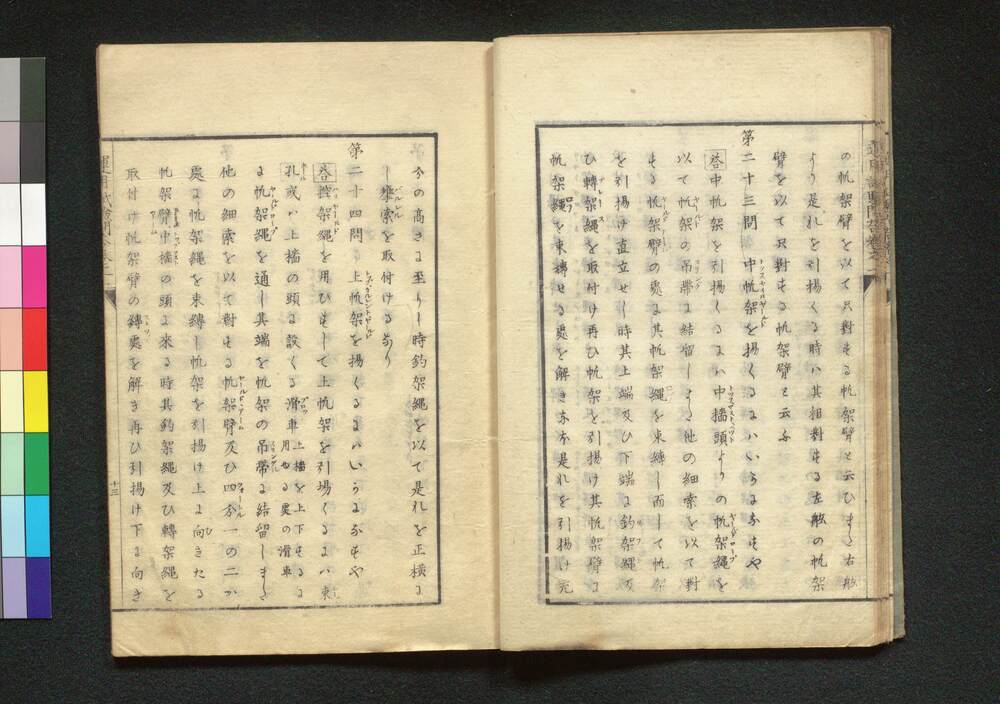 の帆架臂を以て只對する帆架臂と云ひまた右舷
より是れを引揚くる時ハ其相對する左舷の帆架
臂を以て只對する帆架臂と云ふ
第二十三問 中帆架を揚くるにハいかになすや
答 中帆架を引揚くるにハ中檣頭よりの帆架繩を
以て帆架の吊帶に結留しまた他の細索を以て對
する帆架臂の處に其帆架繩を束縛し而して帆架
を引揚け直立せし時其上端及ひ下端に釣架繩及
ひ轉架繩を取付け再ひ帆架を引揚け其帆架臂に
帆架繩を束縛せる處を解きなほ是れを引揚け充
分の高さに至りし時釣架繩を以て是れを正横に
し索を取付けるなり
第二十四問 上帆架を揚くるにハいかになすや
答 控架繩を用ひすして上帆架を引場くるにハ束
孔或ハ上檣の頭に設くる滑車上檣を上下する用の滑車
に帆架繩を通し其端を帆架の吊帶に結留しまた
他の細索を以て對する帆架臂及ひ四分一の二か
處に帆架繩を束縛し帆架を引揚け上に向きたる
帆架臂中檣の頭に來る時其釣架繩及ひ轉架繩を
取付け帆架臂の縛處を解き再ひ引揚け下に向き
十三